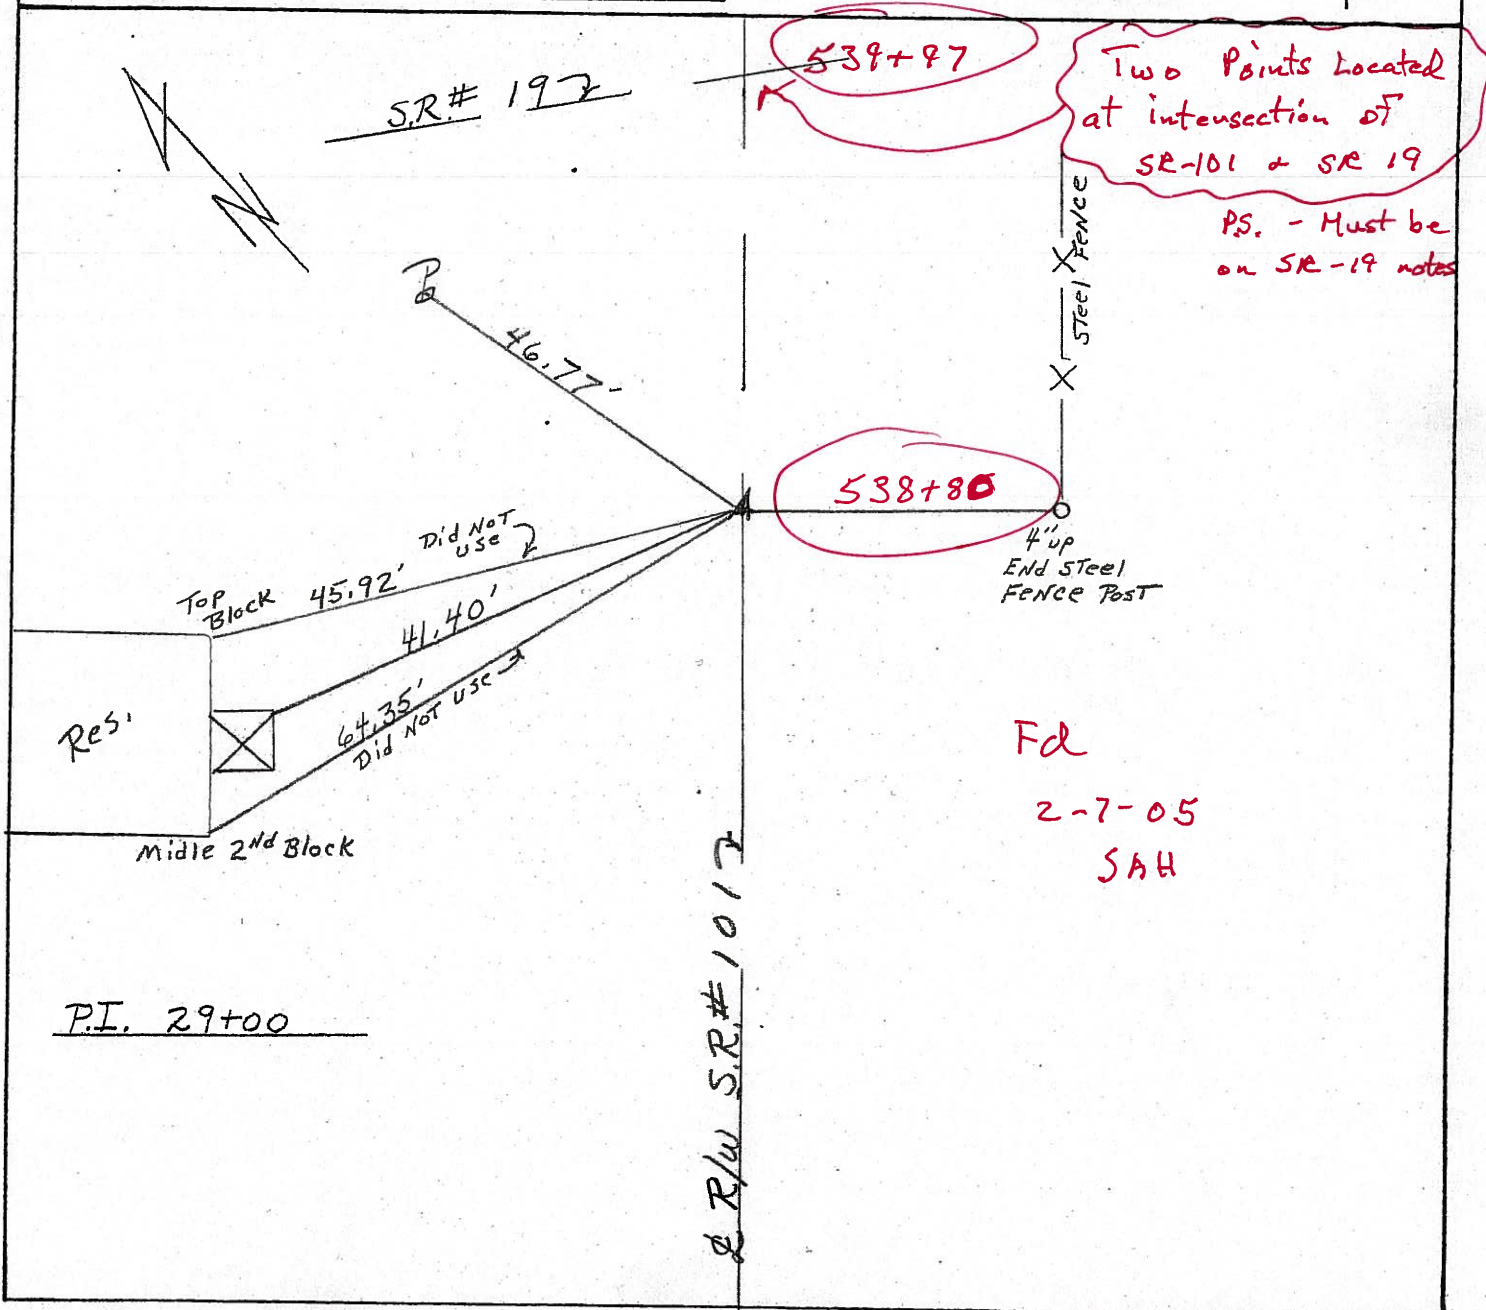 S.R.# 19
539+97
Two Points Located
at intersection of
SR-101 & SR 19
P.S. - Must be
on SR-19 notes
Steel Fence
46.77'
538+80
4" up
End Steel
Fence Post
Did Not
use
Top
Block
45.92'
41.40'
64.35'
Did Not use
Res.
Midle 2nd Block
Fd
2-7-05
SAH
P.I. 29+00
R/W S.R.# 101